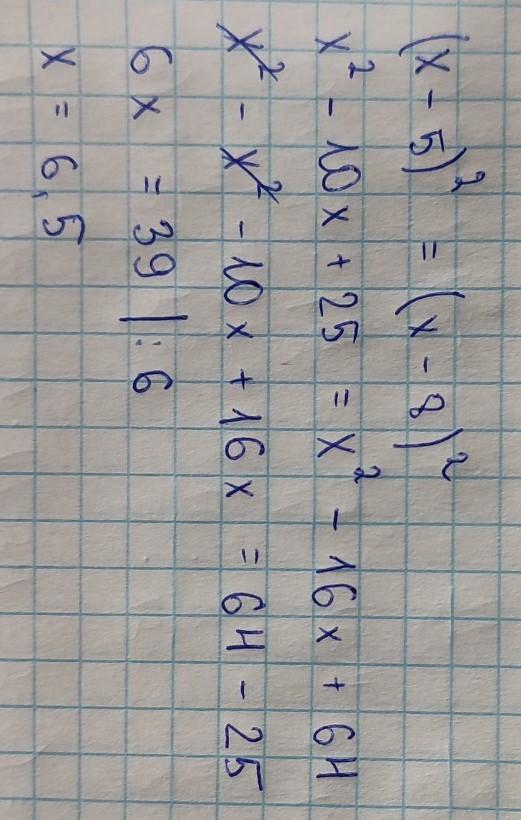 (x - 5)² = (x - 8)²
x² - 10x + 25 = x² - 16x + 64
x² - x² - 10x + 16x = 64 - 25
6x = 39 | : 6
x = 6,5